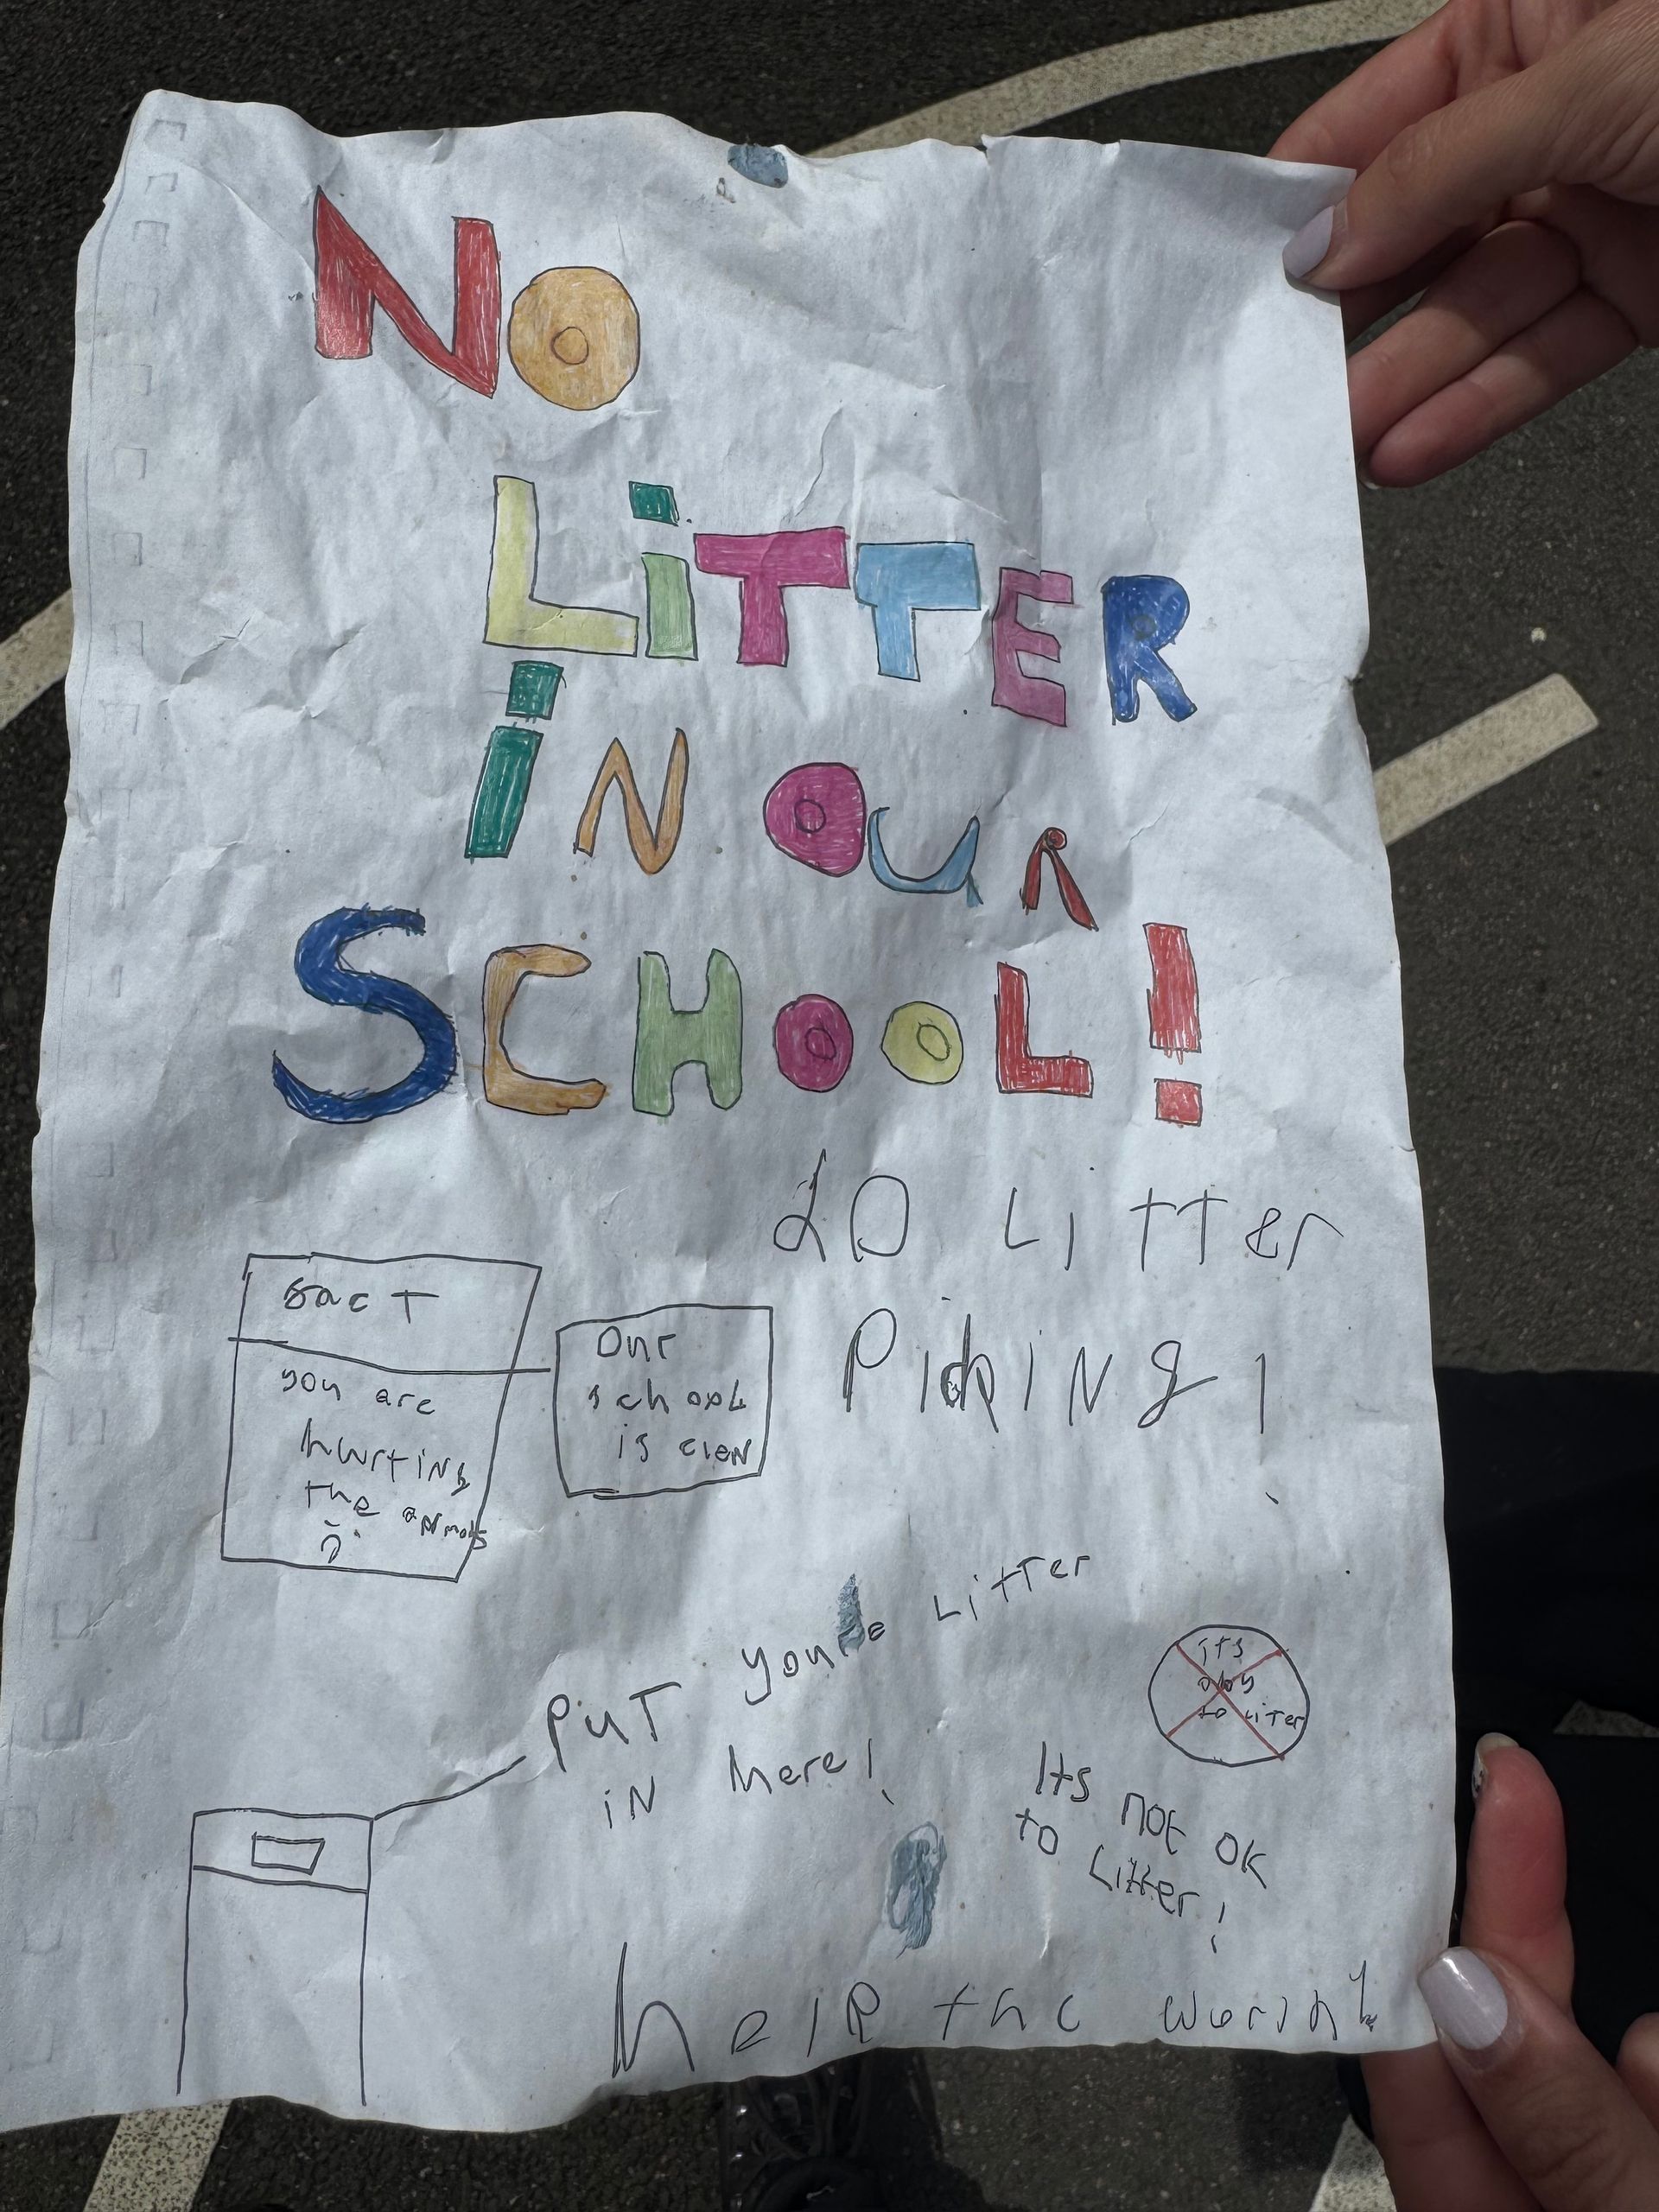 NO
LiTTER
iN OUR
SCHOOL!
dO LiTTer
PickiNg!
Fact
you are
hurtiNg
the anmals
Our
school
is cleN
PuT your Litter
iN here!
its
okay
to LiTer
Its not ok
to Litter!
help the world!